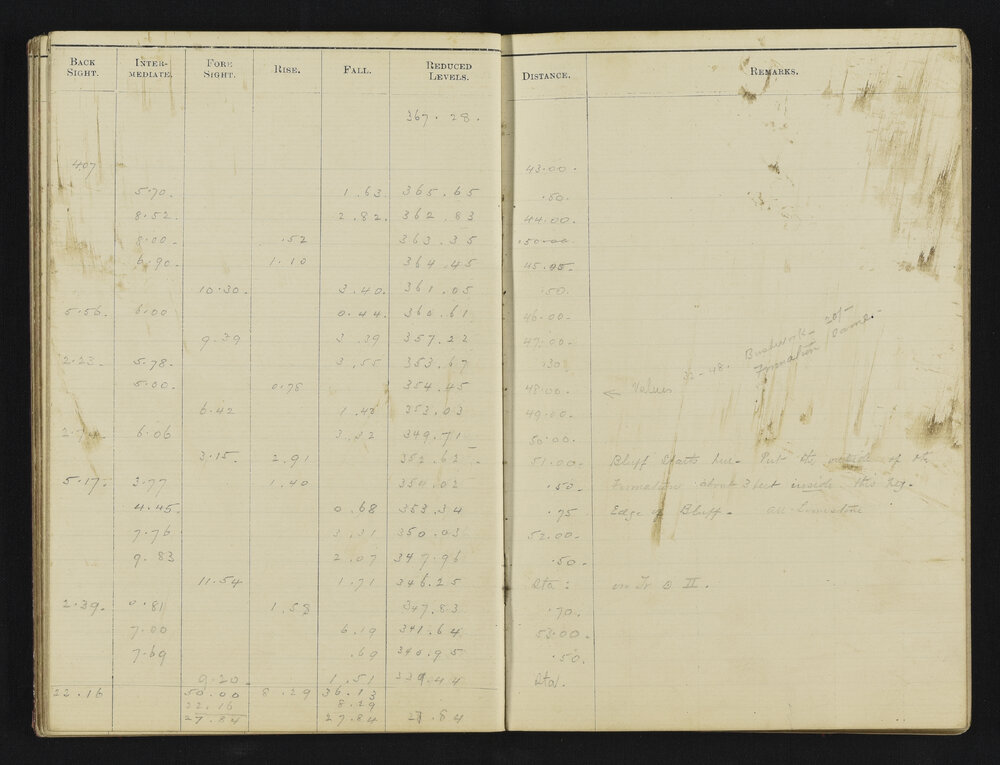 BACK SIGHT. INTER-MEDIATE. FORE SIGHT. RISE. FALL. REDUCED LEVELS. DISTANCE. REMARKS.
367.28.
4.07 43.00.
5.70. 1.63. 365.65 .50.
8.52. 2.82. 362.83 44.00.
8.00. .52 363.35 .50.00
6.90. 1.10 364.45 45.
10.30. 3.40. 361.05 .50.
5.56. 6.00 0.44. 360.61 46.00.
9.39 3.39 357.22 47.00.
2.23. 5.78. 3.55 353.67
5.00. 0.78 354.45 48.00. ← Values 32-48. Bushwork- 20/-
Formation same.-
6.42 1.42 353.03 49.00.
2.74. 6.06 3.32 349.71 50.00.
3.15. 2.91 352.62 51.00. Bluff starts here- Put the outside of the
5.17. 3.77 1.40 354.02 .50. Formation about 3 feet inside this peg-
4.45. 0.68 353.34 .75 Edge of Bluff- all Limestone
7.76 3.31 350.03 52.00.
9.83 2.07 347.96 .50.
11.54 1.71 346.25 Sta: on Tr II.
2.39. 0.81 1.58 347.83 .70.
7.00 6.19 341.64 53.00.
7.69 .69 340.95 .50.
9.20. 1.51 339.44 Sta.
22.16 50.00 8.29 36.13
22.16 8.29
27.84 27.84 27.84